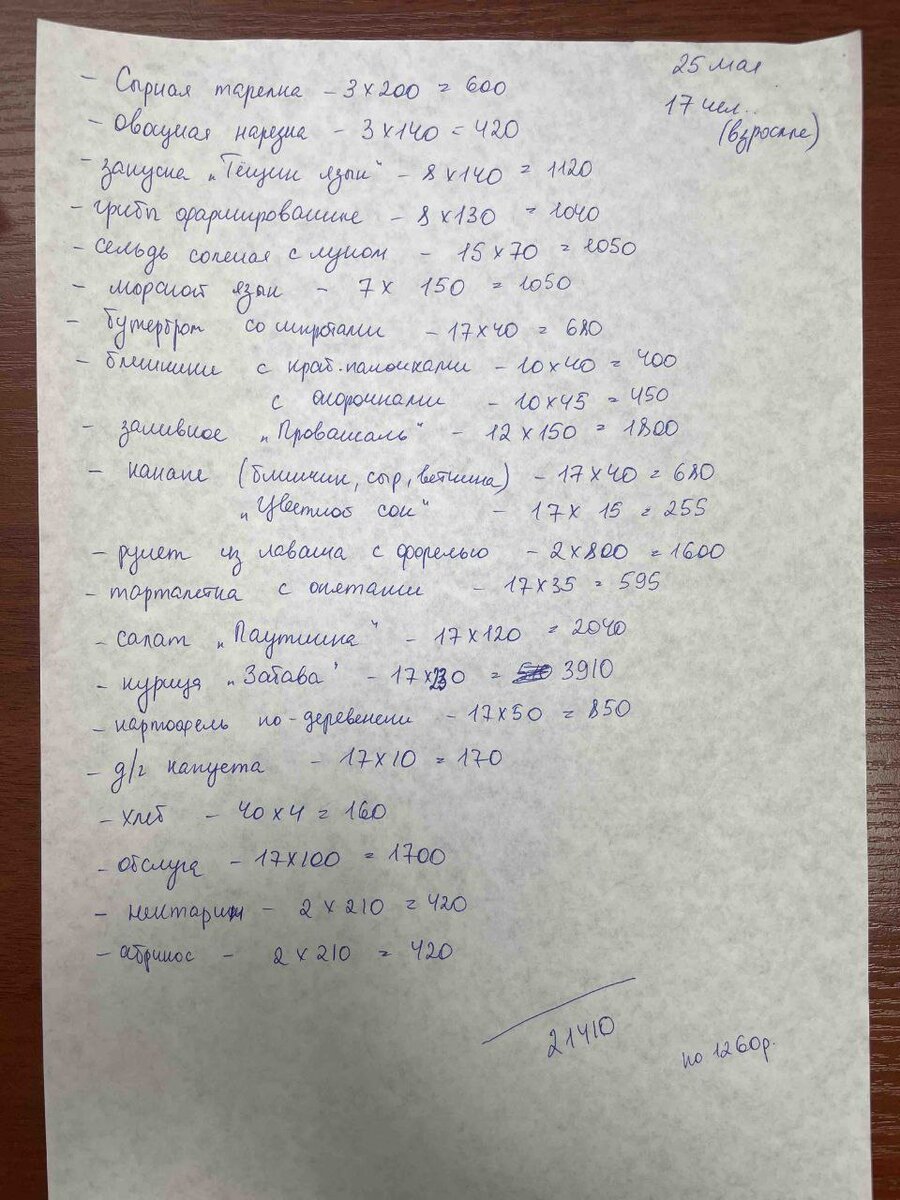 25 мая
17 чел..
(взрослые)
- Сырная тарелка - 3 x 200 = 600
- Овощная нарезка - 3 x 140 = 420
- закуска „Тёщин язык" - 8 x 140 = 1120
- грибы фаршированные - 8 x 130 = 1040
- сельдь соленая с луком - 15 x 70 = 1050
- морской язык - 7 x 150 = 1050
- бутерброт со шпротами - 17 x 40 = 680
- блинчики с краб.палочками - 10 x 40 = 400
с окорочками - 10 x 45 = 450
- заливное „Провансаль" - 12 x 150 = 1800
- канапе (блинчик, сыр, ветчина) - 17 x 40 = 680
„Цветной сон" - 17 x 15 = 255
- рулет из лаваша с форелью - 2 x 800 = 1600
- тарталетка с опятами - 17 x 35 = 595
- салат „Паутинка" - 17 x 120 = 2040
- курица „Забава" - 17 x 230 = 3910
- картофель по-деревенски - 17 x 50 = 850
- д/г капуста - 17 x 10 = 170
- хлеб - 40 x 4 = 160
- обслуга - 17 x 100 = 1700
- нектарин - 2 x 210 = 420
- абрикос - 2 x 210 = 420
21410
по 1260р.